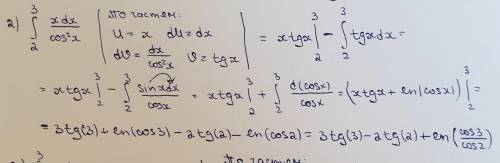 2) ∫₂³ xdx/cos²x | по частям: u = x du = dx dv = dx/cos²x v = tgx | = x tgx |₂³ − ∫₂³ tgx dx =
= x tgx |₂³ − ∫₂³ sinxdx/cosx = x tgx |₂³ + ∫₂³ d(cosx)/cosx = (x tgx + ln(cosx)) |₂³ =
= 3tg(3) + ln(cos3) − 2tg(2) − ln(cos2) = 3tg(3) − 2tg(2) + ln(cos3/cos2)